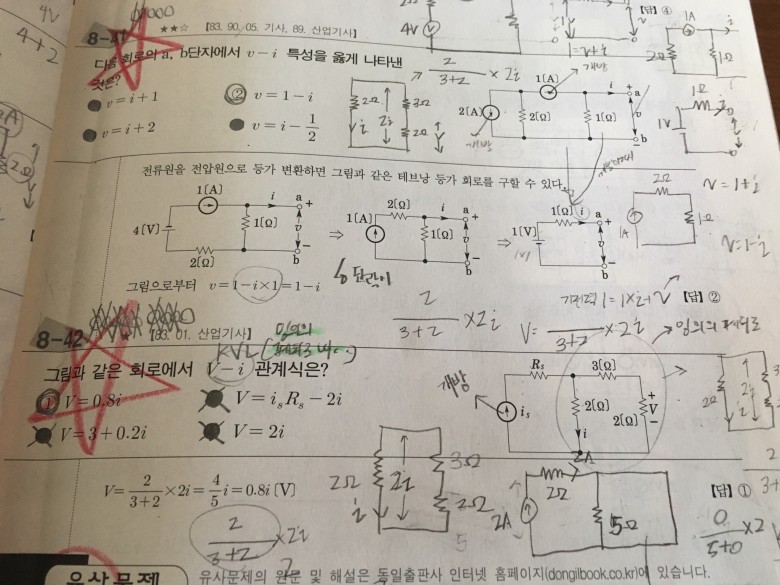 4V
4+2
4V
[답] ④
1A
i
2Ω
1Ω
8-41
★★☆ [83. 90. 05. 기사, 89. 산업기사]
다음 회로의 a, b단자에서 v-i 특성을 옳게 나타낸
것은?
v=i+1
② v=1-i
v=i+2
v=i-1/2
2Ω
i
2i
3Ω
2Ω
2/(3+2) × 2i
개방
1[A]
i
a
+
2[A]
2[Ω]
1[Ω]
v
-
b
개방
1Ω
1V
전류원을 전압원으로 등가 변환하면 그림과 같은 테브낭 등가 회로를 구할 수 있다.
1[A]
i
a
+
4[V]
1[Ω]
v
2[Ω]
-
b
⇒
2[Ω]
i
a
+
1[A]
1[Ω]
v
-
b
⇒
1[Ω]
i
a
+
1[V]
v
-
b
2Ω
1A
1Ω
v=1+i
v=1-i
그림으로부터 v=1-i×1=1-i
기전력 1=1×i+v
[답] ②
2/(3+2) ×2i
V= 2/(3+2) ×2i
임의의 폐회로
8-42
[83. 01. 산업기사]
KVL
임의의
그림과 같은 회로에서 V-i 관계식은?
① V=0.8i
V=i_sR_s-2i
V=3+0.2i
V=2i
개방
R_s
3[Ω]
i_s
2[Ω]
i
+
V
2[Ω]
-
2Ω
2i
i
V=2/(3+2)×2i=4/5 i=0.8i [V]
2/(3+2) ×2i
2Ω
i
2i
3Ω
2Ω
5
2A
2A
2Ω
5Ω
[답] ①
2
3+
0/(5+0) ×2
유사문제
유사문제의 원문 및 해설은 동일출판사 인터넷 홈페이지(dongilbook.co.kr)에 있습니다.